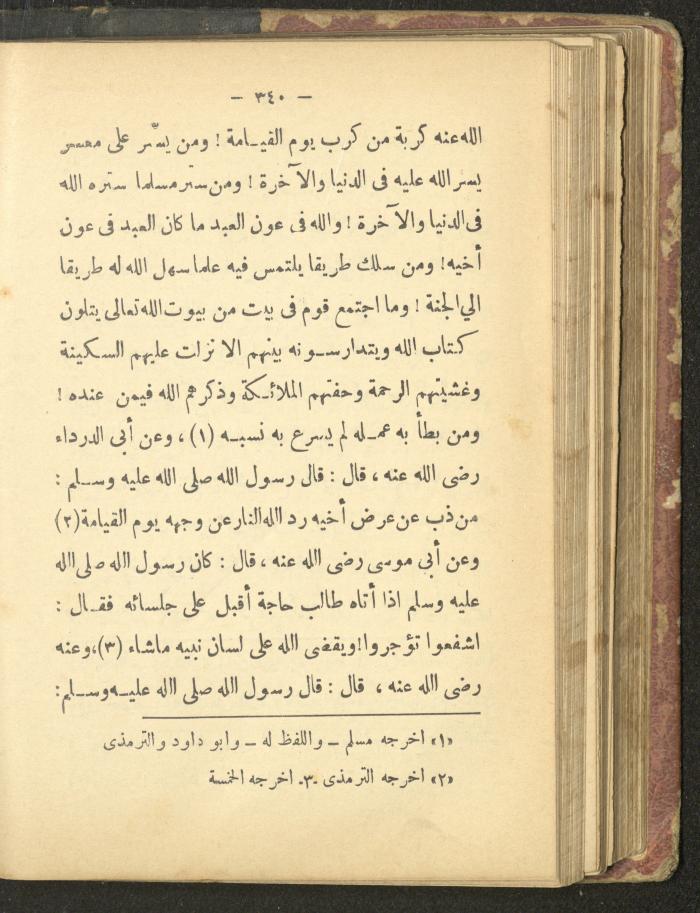 — ٣٤٠ —
الله عنه كربة من كرب يوم القيـامة ! ومن يسّر على معسر
يسر الله عليه فى الدنيا والآخرة ! ومن ستر مسلما ستره الله
فى الدنيا والآخرة ! والله فى عون العبد ما كان العبد فى عون
أخيه ! ومن سلك طريقا يلتمس فيه علما سهل الله له طريقا
الي الجنة ! وما اجتمع قوم فى بيت من بيوت الله تعالى يتلون
كتاب الله ويتدارسـونه بينهم الا نزلت عليهم السكينة
وغشيتهم الرحمة وحفتهم الملائـكة وذكرهم الله فيمن عنده !
ومن بطأ به عمـله لم يسرع به نسبـه (١) ، وعن أبى الدرداء
رضى الله عنه ، قال : قال رسول الله صلى الله عليه وسـلم :
من ذب عن عرض أخيه رد الله النار عن وجهه يوم القيامة (٢)
وعن أبي موسى رضى الله عنه ، قال : كان رسول الله صلى الله
عليه وسلم اذا أتاه طالب حاجة أقبل على جلسائه فقـال :
اشفعوا تؤجروا ! ويقضى الله على لسان نبيه ماشاء (٣)، وعنه
رضى الله عنه ، قال : قال رسول الله صلى الله عليـه وسـلم :
«١» اخرجه مسلم ـ واللفظ له ـ وابو داود والترمذى
«٢» اخرجه الترمذى .٣. اخرجه الخمسة